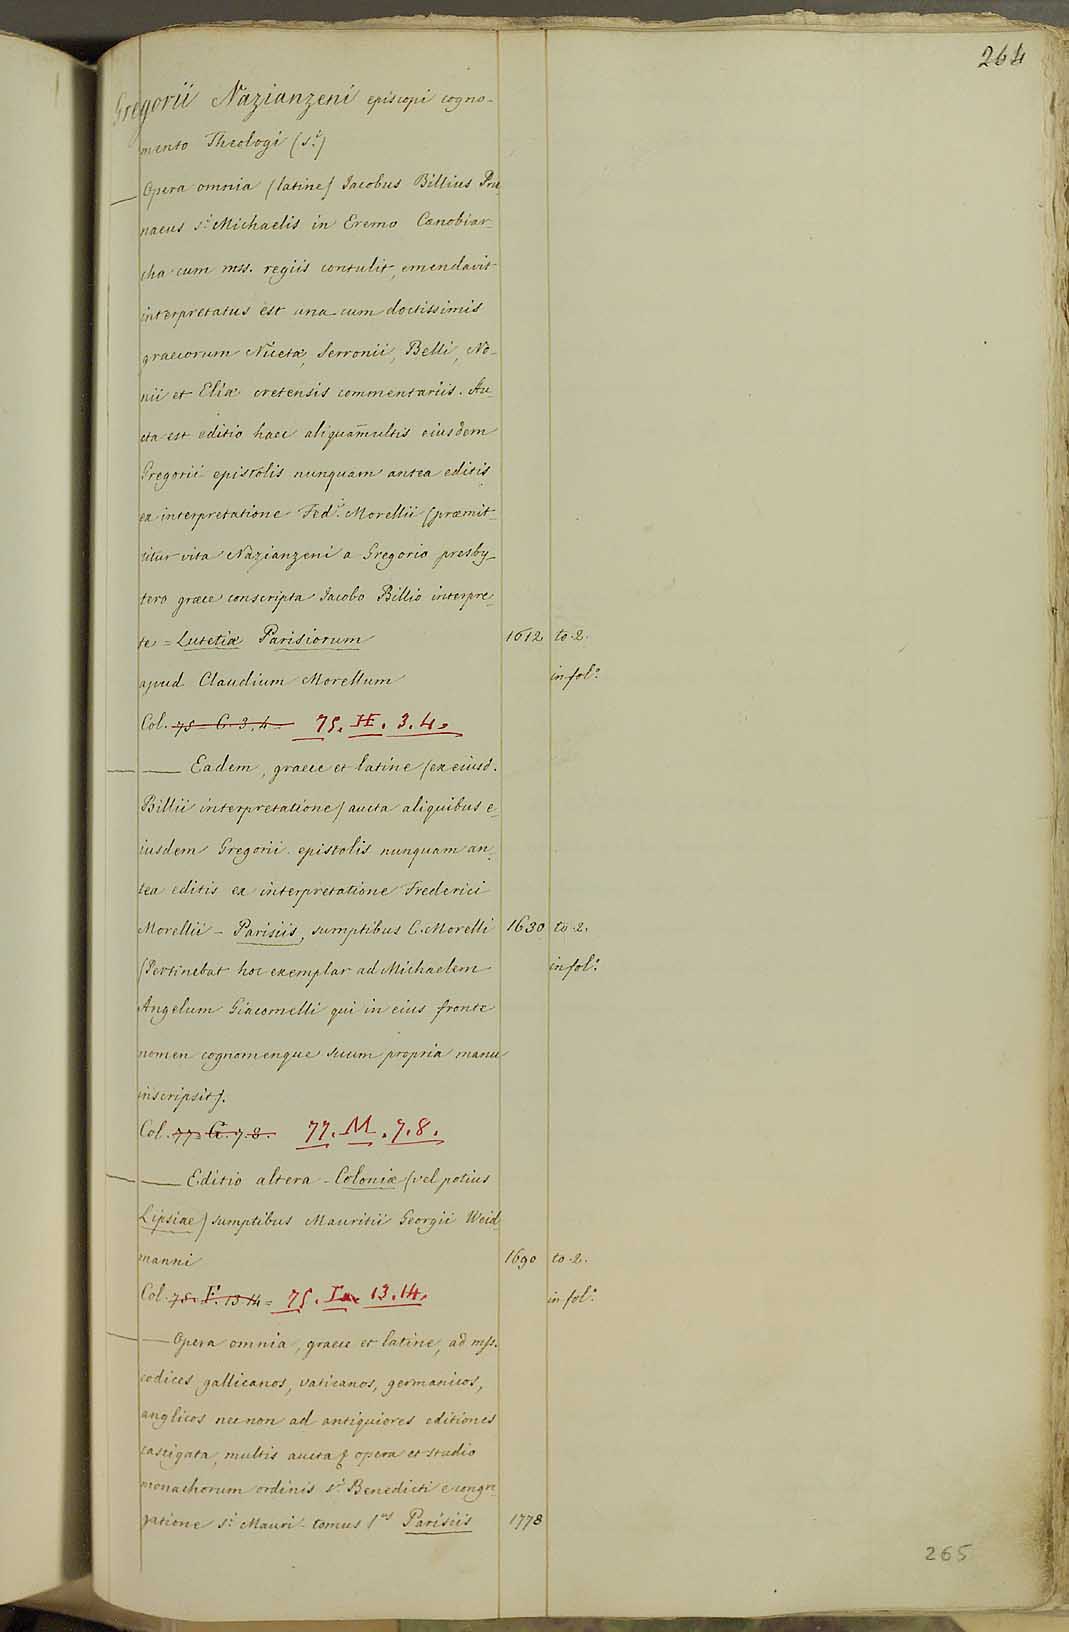 264
Gregorii Nazianzeni episcopi cogno-
mento Theologi (s.i)
— Opera omnia (latine) Jacobus Billius Pru-
naeus s.i Michaelis in Eremo Cœnobiar-
cha cum mss. regiis contulit, emendavit
interpretatus est una cum doctissimis
graecorum Nicetæ, Serronii, Belli, No-
nii et Eliæ cretensis commentariis. Au-
cta est editio haec aliquammultis eiusdem
Gregorii epistolis nunquam antea editis
ex interpretatione Fed.i Morellii (præmit-
titur vita Nazianzeni a Gregorio presby-
tero græce conscripta Jacobo Billio interpre-
te = Lutetiæ Parisiorum 1612 to. 2.
apud Claudium Morellum in fol.o
Col. 75. C. 3. 4. 75. H. 3. 4.
— Eadem, graece et latine (ex eiusd.
Billii interpretatione) aucta aliquibus e-
iusdem Gregorii epistolis nunquam an-
tea editis ex interpretatione Frederici
Morellii - Parisiis, sumptibus C. Morelli 1630 to. 2.
(Pertinebat hoc exemplar ad Michaelem in fol.o
Angelum Giacomelli qui in eius fronte
nomen cognomenque suum propria manu
inscripsit).
Col. 77. G. 7. 8. 77. M. 7. 8.
— Editio altera - Coloniæ (vel potius
Lipsiae) sumptibus Mauritii Georgii Weid-
manni 1690 to. 2.
Col. 75. F. 13. 14 = 75. I. 13. 14. in fol.o
— Opera omnia, graece et latine, ad mss.
codices gallicanos, vaticanos, germanicos,
anglicos nec non ad antiquiores editiones
castigata, multis aucta & opera et studio
monachorum ordinis s.i Benedicti e congre-
gatione s.i Mauri - tomus 1.us Parisiis 1778
265